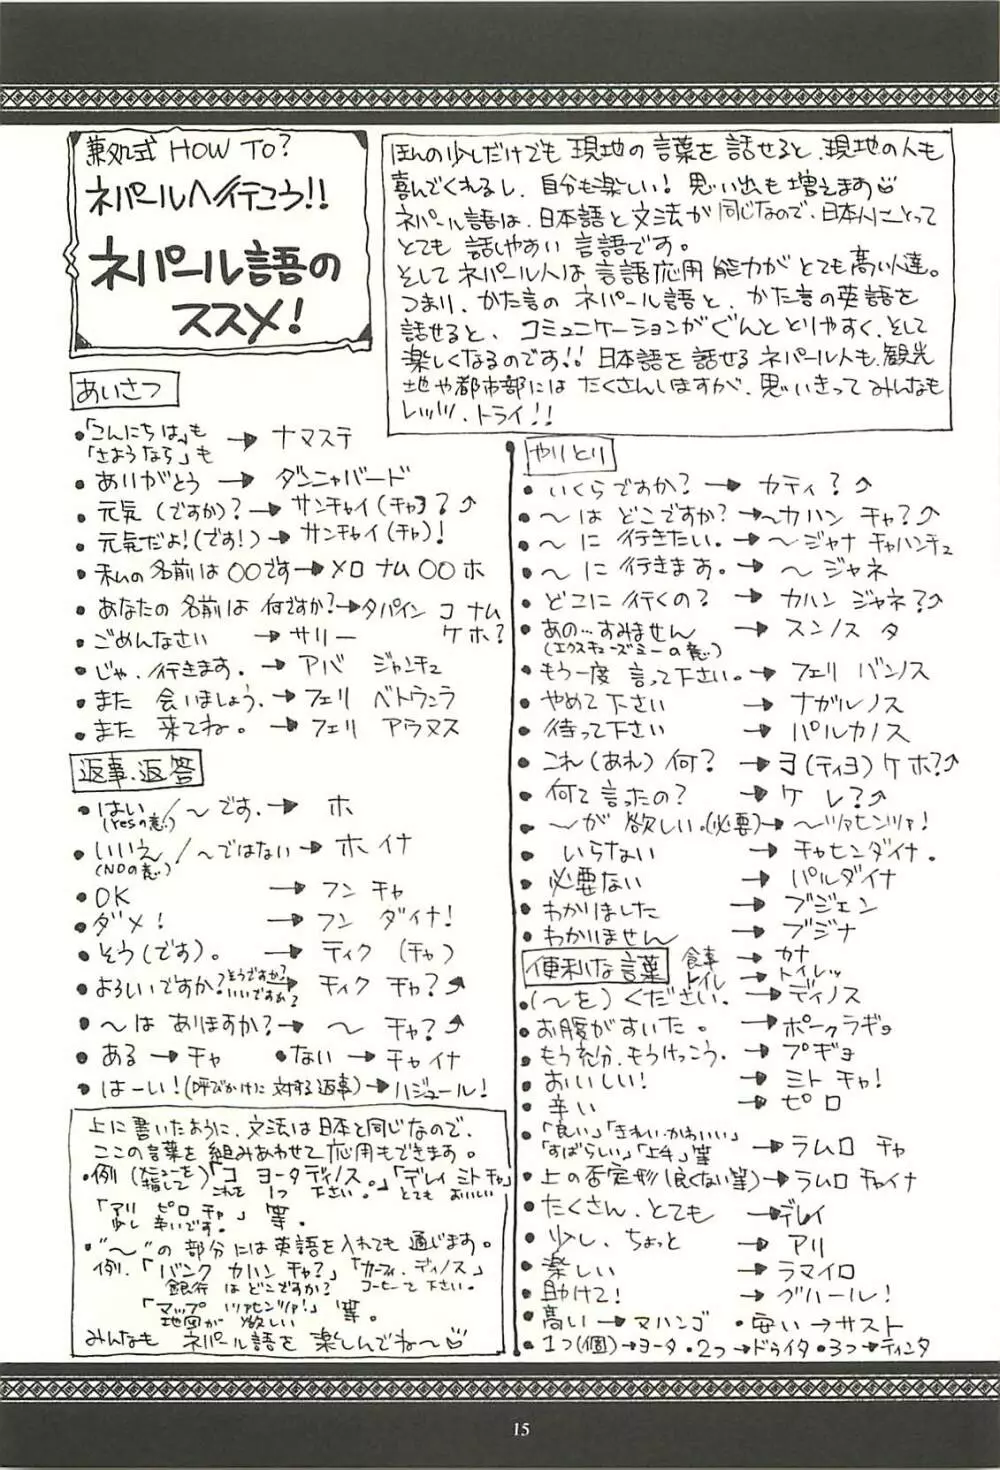 兼処式 HOW TO?
ネパールへ行こう!!
ネパール語の
ススメ!
ほんの少しだけでも 現地の 言葉を 話せると、現地の人も
喜んでくれるし、自分も楽しい! 思い出も 増えます
ネパール語は、日本語と文法が 同じなので、日本人にとって
とても 話しやすい 言語です。
そして ネパール人は 言語応用 能力が とても高い人達。
つまり、かた言の ネパール語と、かた言の英語を
話せると、コミュニケーションが ぐんと とりやすく、そして
楽しくなるのです!! 日本語を 話せる ネパール人も、観光
地や都市部には たくさんいますが、思いきって みんなも
レッツ、トライ!!
あいさつ
•「こんにちは」も
「さようなら」も → ナマステ
• ありがとう → ダンニャバード
• 元気 (ですか)? → サンチャイ (チャ)?↗
• 元気だよ!(です!) → サンチャイ (チャ)!
• 私の名前は 〇〇です → メロ ナム 〇〇 ホ
• あなたの 名前は 何ですか? → タパイン コ ナム
ケ ホ?
• ごめんなさい → サリー
• じゃ、行きます。 → アバ ジャンチュ
• また 会いましょう。 → フェリ ベトウンラ
• また 来てね。 → フェリ アウヌス
返事、返答
• はい。/〜です。 → ホ
(Yesの意)
• いいえ/〜ではない → ホイナ
(NOの意)
• OK → フン チャ
• ダメ! → フン ダイナ!
• そう(です)。 → ティク (チャ)
• よろしいですか? そうですか? いいですか? → ティク チャ?↗
• 〜は ありますか? → 〜 チャ?↗
• ある → チャ • ない → チャイナ
• はーい!(呼びかけに 対する返事) → ハジュール!
上に書いたように、文法は日本と同じなので、
ここの言葉を 組みあわせて 応用もできます。
•例 (メニューを指して)「コ ヨータ ディノス。」「デレイ ミト チャ」
これを 1つ 下さい。 とても おいしい
「アリ ピロ チャ」 等。
少し 辛いです。
•"〜"の 部分には 英語を入れても 通じます。
例.「バンク カハン チャ?」「カーフィ ディノス」
銀行 は どこですか? コーヒーて 下さい。
「マップ ツァヒンツァ!」 等。
地図が 欲しい
みんなも ネパール語を 楽しんでね〜
やりとり
• いくらですか? → カティ?↗
• 〜は どこですか? → 〜カハン チャ?↗
• 〜に 行きたい。 → 〜ジャナ チャハンチュ
• 〜に 行きます。 → 〜 ジャネ
• どこに 行くの? → カハン ジャネ?↗
• あの…すみません → スンノス タ
(エクスキューズミーの意)
• もう一度 言って下さい。 → フェリ バンノス
• やめて 下さい → ナガルノス
• 待って 下さい → パルカノス
• これ(あれ)何? → ヨ(ティヨ)ケ ホ?↗
• 何て 言ったの? → ケ レ?↗
• 〜が 欲しい。(必要) → 〜ツァヒンツァ!
• いらない → チャヒンダイナ。
• 必要ない → パルダイナ
• わかりました → ブジェン
• わかりません → ブジナ
便利な言葉
食事 → カナ
トイレ → トイレッ
•(〜を)ください。 → ディノス
• お腹がすいた。 → ボークラギョ
• もう充分、もうけっこう。 → プギョ
• おいしい! → ミト チャ!
• 辛い → ピロ
•「良い」「きれい・かわいい」
「すばらしい」「上手」等 → ラムロ チャ
• 上の否定形(良くない等) → ラムロ チャイナ
• たくさん、とても → デレイ
• 少し、ちょっと → アリ
• 楽しい → ラマイロ
• 助けて! → グハール!
• 高い → マハンゴ • 安い → サスト
• 1つ(個) → ヨータ • 2つ → ドゥイタ • 3つ → ティンタ
15